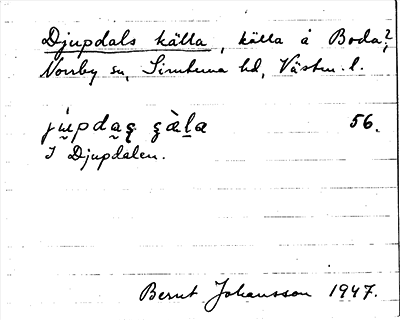 Djupdals källa, källa å Boda?,
Norrby sn, Simtuna hd, Västm. l.
jùpdaʂ ʂàla 56.
I Djupdalen.
Bernt Johansson 1947.